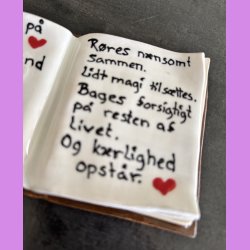 på
nd
Røres nænsomt
sammen.
Lidt magi tilsættes.
Bages forsigtigt
på resten af
livet.
Og kærlighed
opstår.